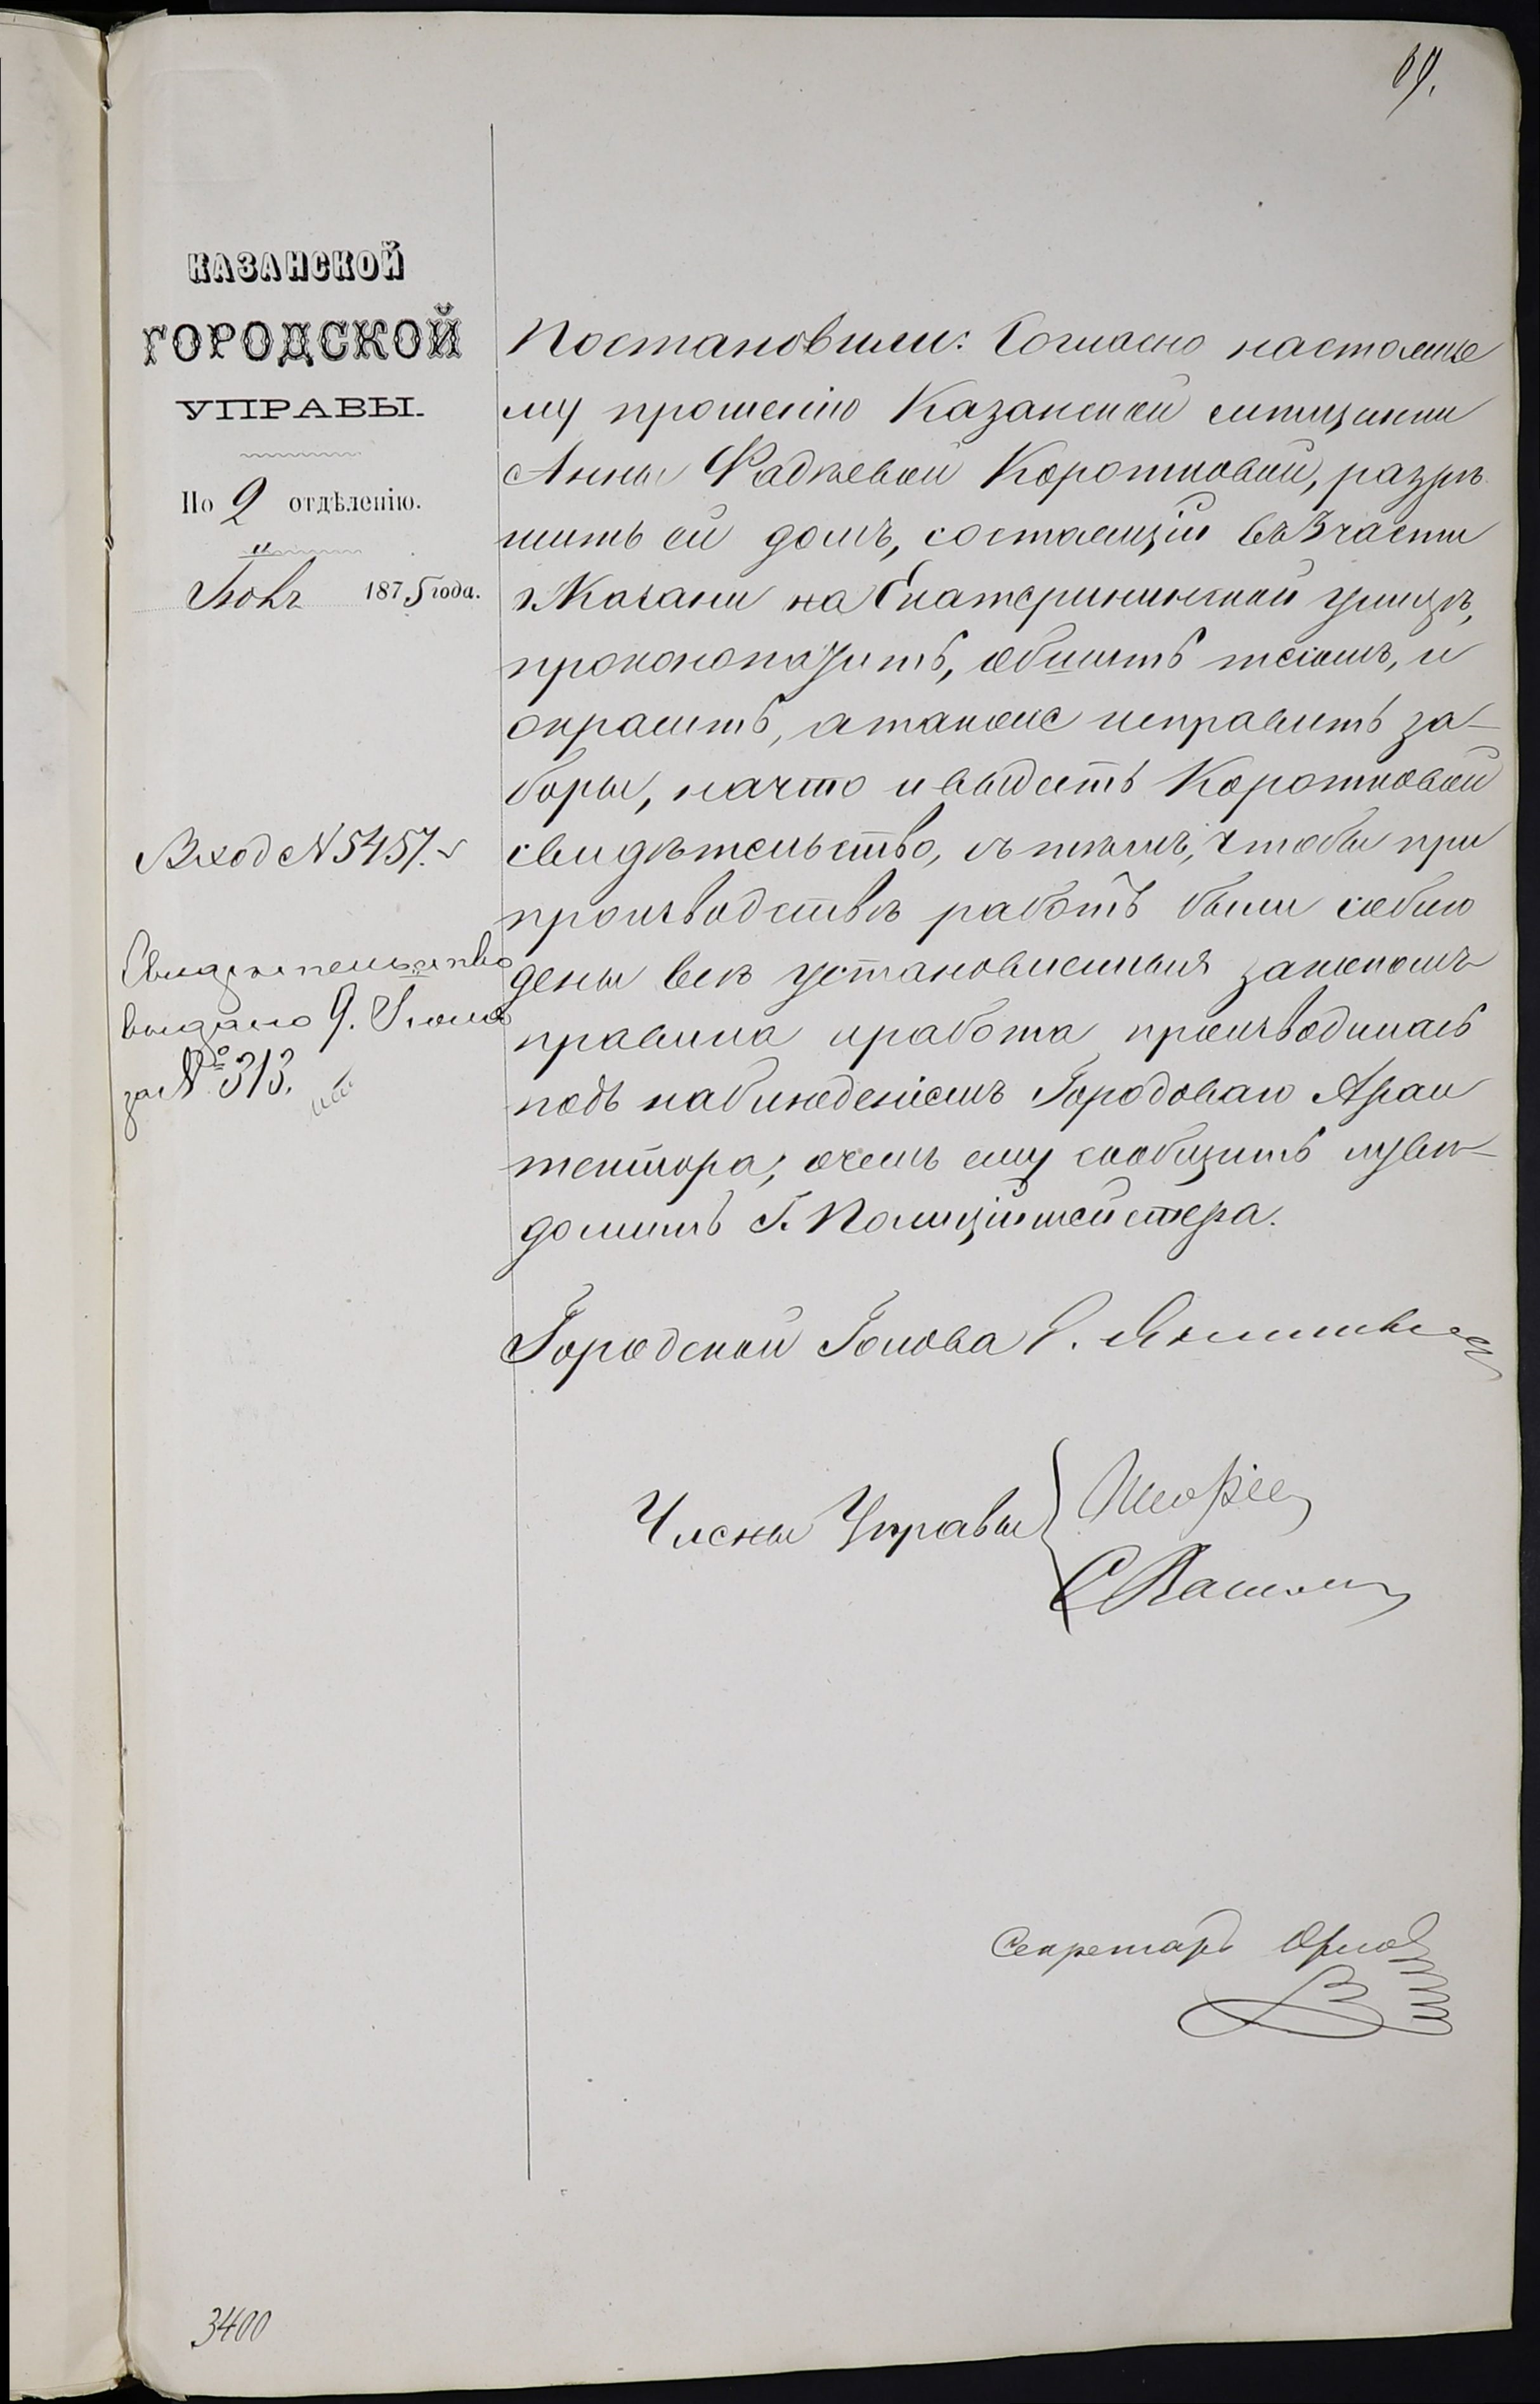 69.
КАЗАНСКОЙ
ГОРОДСКОЙ
УПРАВЫ.
По 2 отдѣленію.
"
1875 года.
Вход № 5457.
Свидѣтельство
выдано 9. Іюля
за № 313.
Постановили: Согласно настояще
му прошенію Казанской мѣщанки
Анны Фадѣевой Коротковой, разрѣ
шить ей домъ, состоящій въ 3 части
г. Казани на Екатерининской улицѣ,
проконопатить, обшить тесомъ, и
окрасить, а также исправить за-
боры, на что и выдать Коротковой
свидѣтельство, съ тѣмъ, чтобы при
производствѣ работъ были соблю
дены всѣ установленныя закономъ
правила и работа производилась
подъ наблюденіемъ Городоваго Архи
тектора; о чемъ ему сообщить и увѣ-
домить Г. Полиціймейстера.
Городской Голова
Члены Управы
Секретарь Орлов
3400